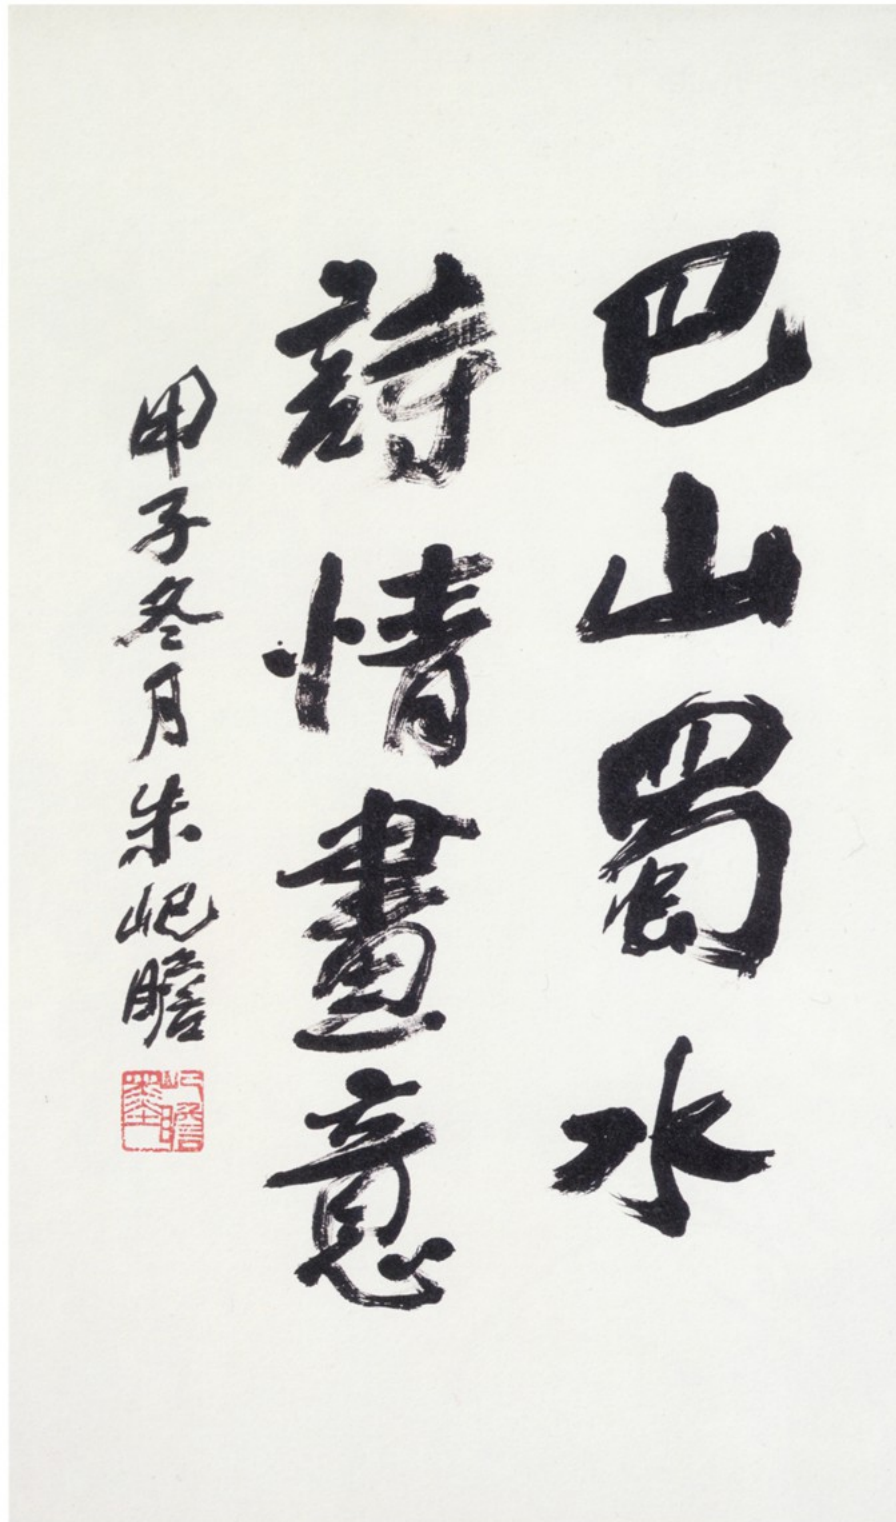 巴山蜀水
詩情畫意
甲子冬月朱屺瞻
屺瞻墨